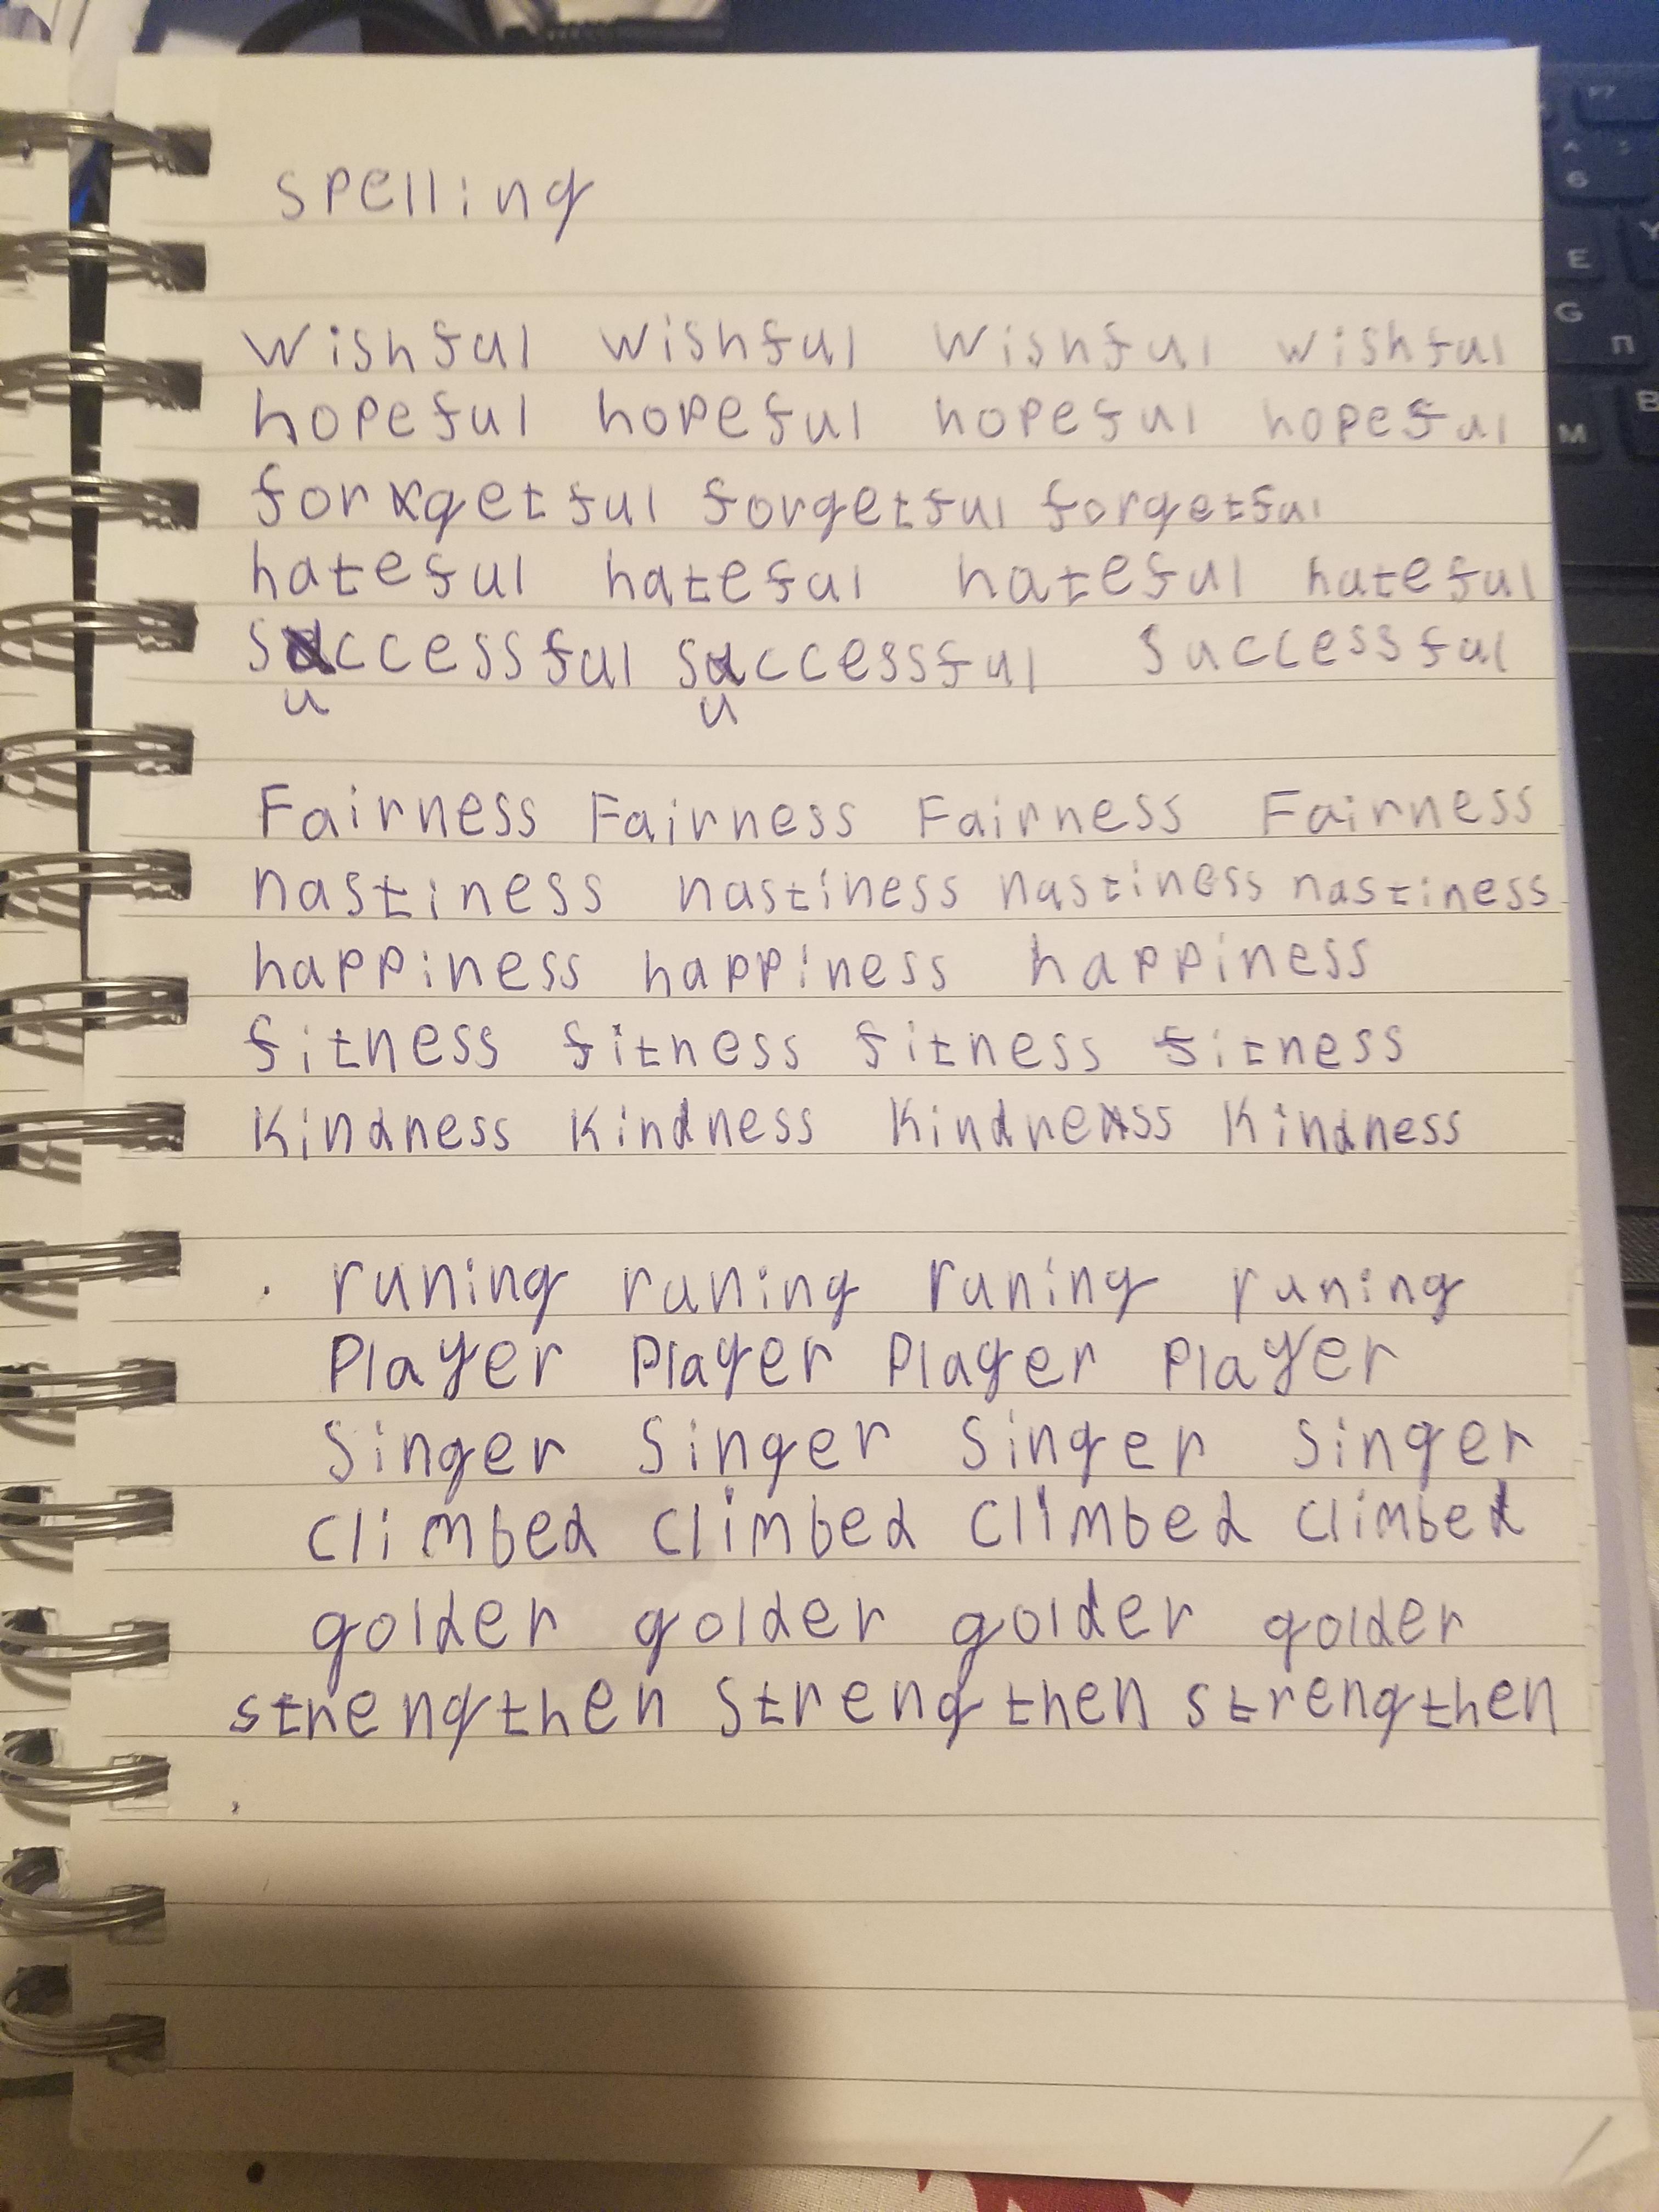 spelling
wishful wishful wishful wishful
hopeful hopeful hopeful hopeful
forgetful forgetful forgetful
hateful hateful hateful hateful
successful successful successful
Fairness Fairness Fairness Fairness
nastiness nastiness nastiness nastiness
happiness happiness happiness
fitness fitness fitness fitness
Kindness Kindness Kindness Kindness
runing runing runing runing
Player Player Player Player
Singer Singer Singer Singer
climbed climbed climbed climbed
golder golder golder golder
strengthen strengthen strengthen